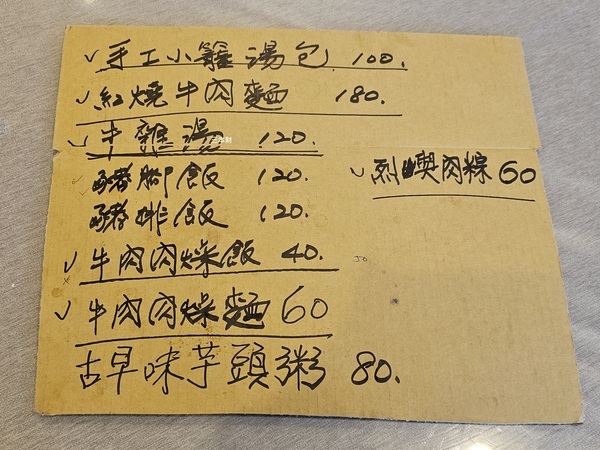 手工小籠湯包 100.
紅燒牛肉麵 180.
牛雜湯 120.
豬腳飯 120.
烈嶼肉粽 60
豬排飯 120.
牛肉肉燥飯 40.
牛肉肉燥麵 60
古早味芋頭粥 80.